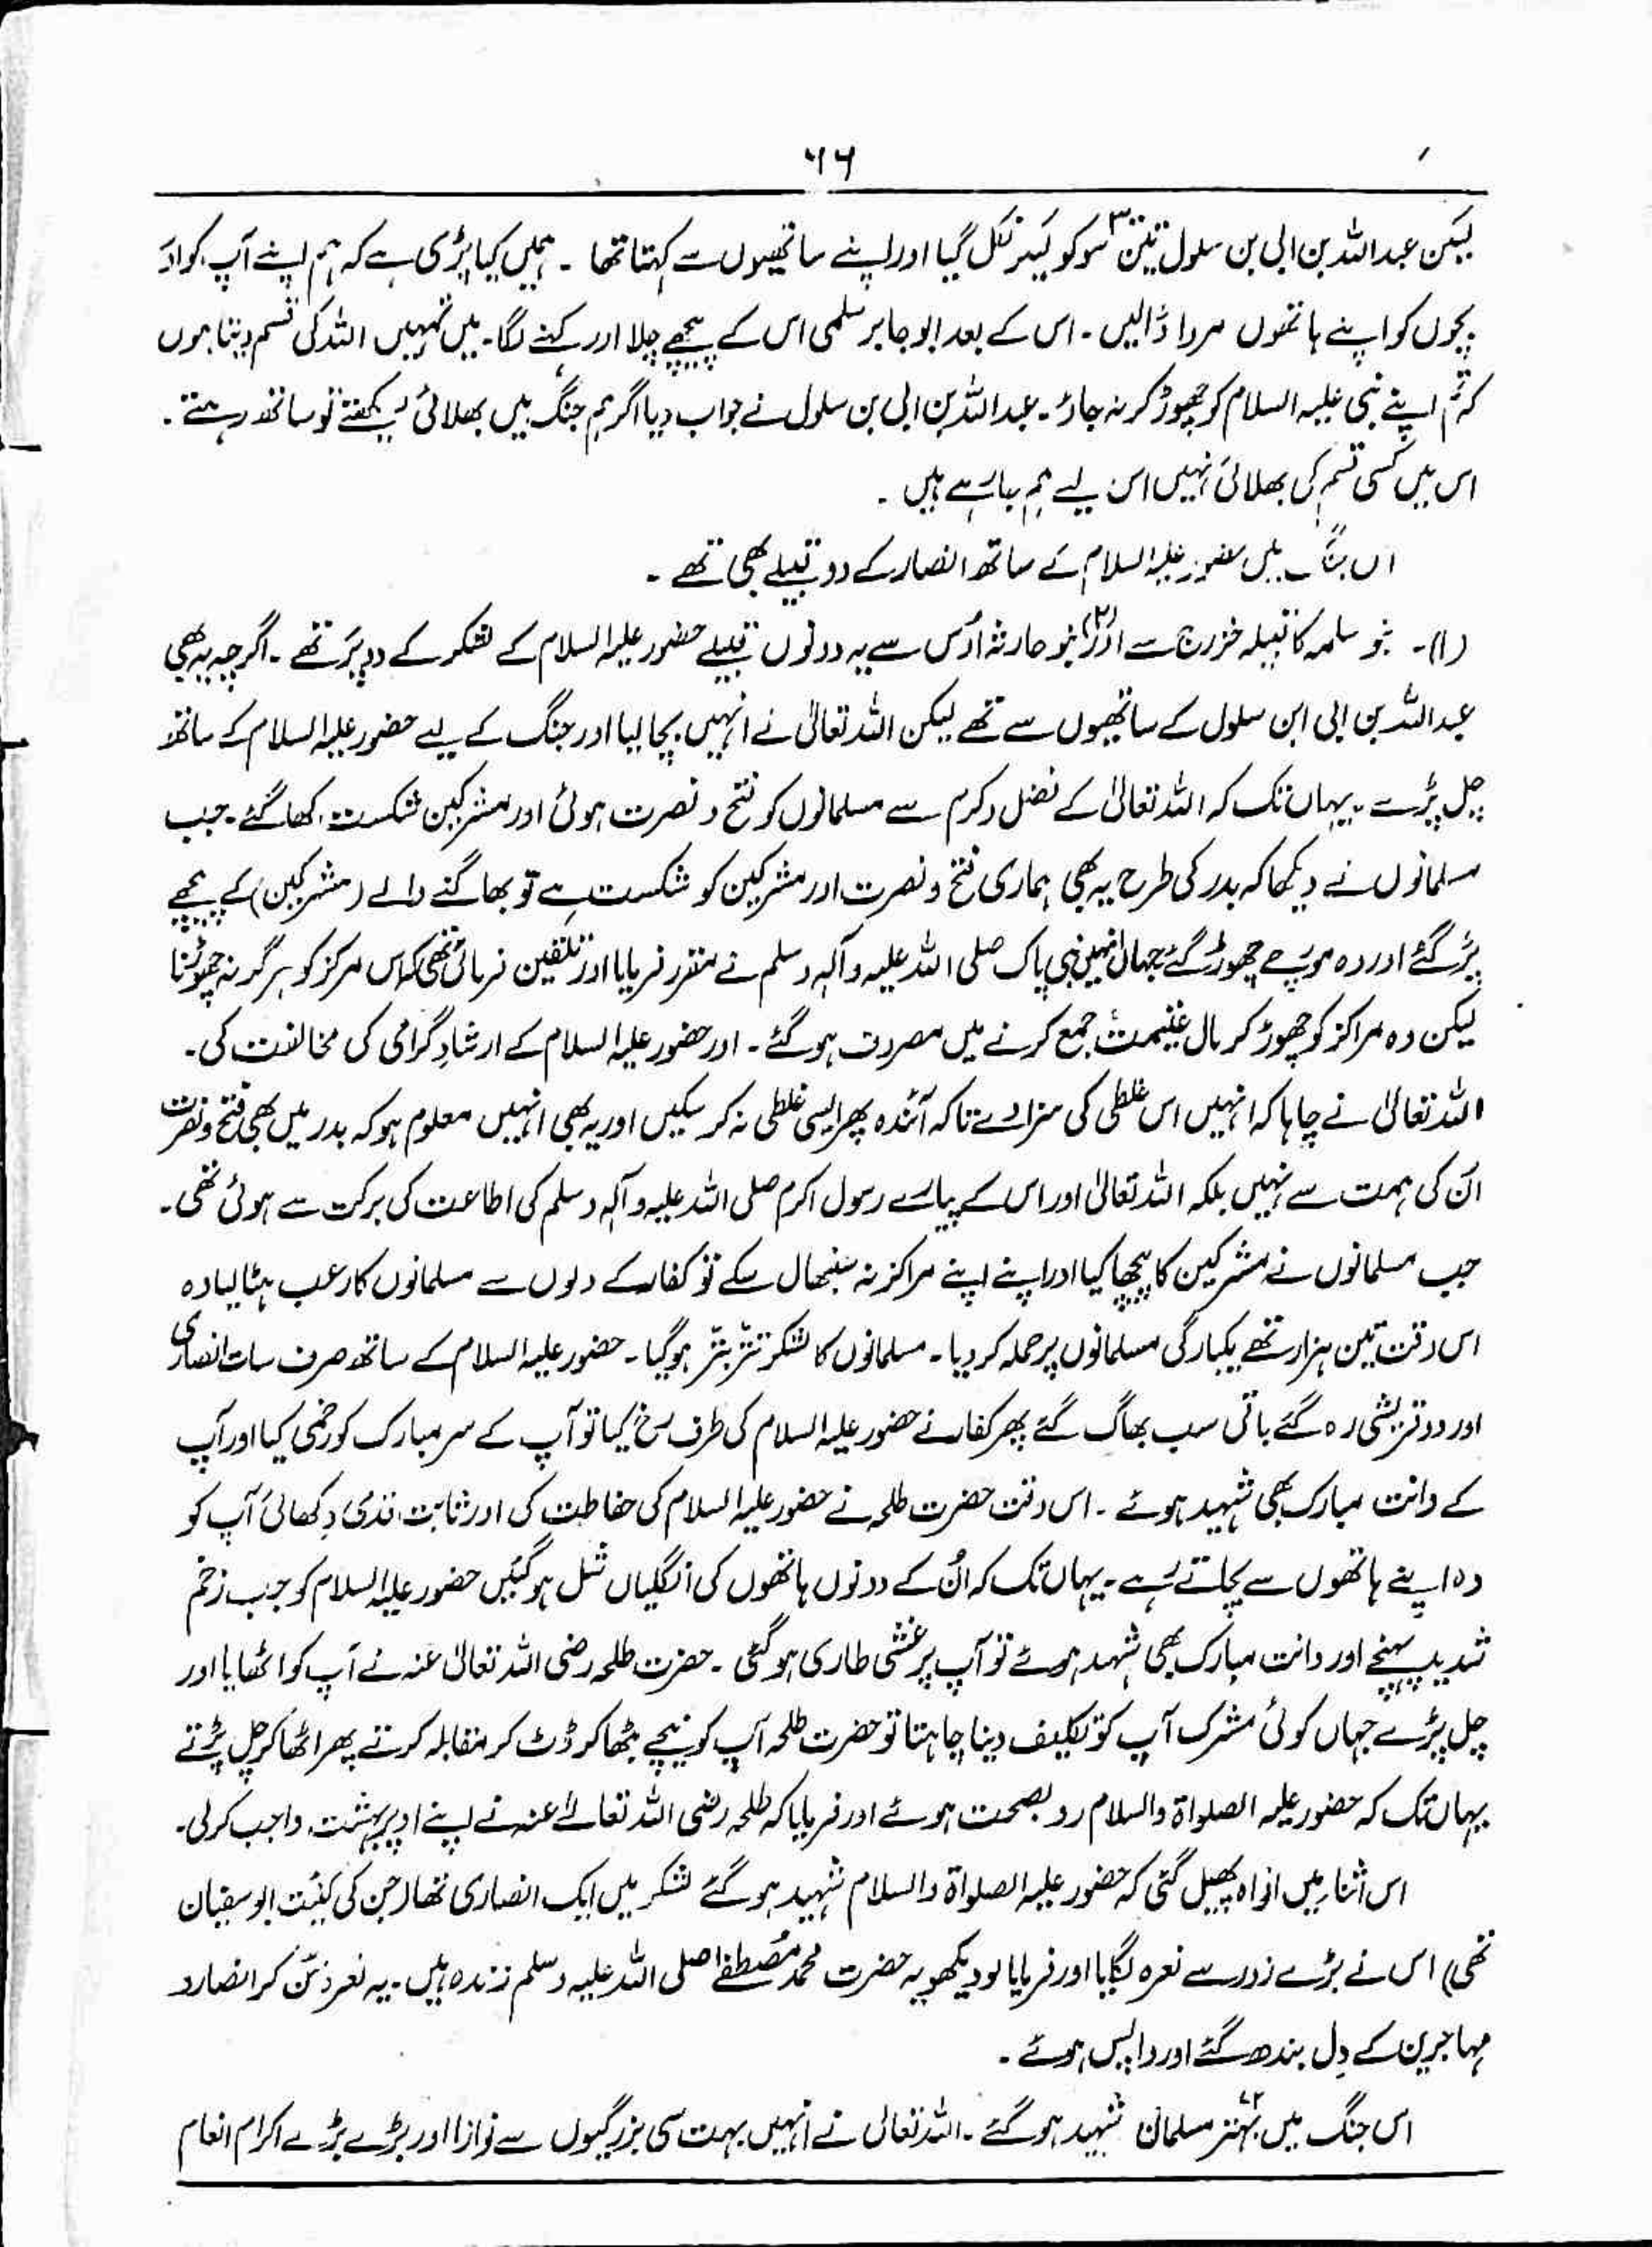 ۶۶
لیکن عبداللہ بن ابی بن سلول تین ۳ سو کو لیکر نکل گیا اور اپنے ساتھیوں سے کہتا تھا ۔ ہمیں کیا پڑی ہے کہ ہم اپنے آپ کو اور
بچوں کو اپنے ہاتھوں مروا ڈالیں ۔ اس کے بعد ابو جابر سلمی اس کے پیچھے چلا اور کہنے لگا ۔ میں تمہیں اللہ کی قسم دیتا ہوں
کہ تم اپنے نبی علیہ السلام کو چھوڑ کر نہ جاؤ ۔ عبداللہ بن ابی بن سلول نے جواب دیا اگر ہم جنگ میں بھلائی دیکھتے تو ساتھ رہتے ۔
اس میں کسی قسم کی بھلائی نہیں اس لیے ہم جا رہے ہیں ۔
اس جنگ میں حضور علیہ السلام کے ساتھ انصار کے دو قبیلے بھی تھے ۔
(۱)۔ بنو سلمہ کا قبیلہ خزرج سے اور (۲) بنو حارثہ اَوس سے یہ دونوں قبیلے حضور علیہ السلام کے لشکر کے دو پَر تھے ۔ اگرچہ یہ بھی
عبداللہ بن ابی ابن سلول کے ساتھیوں سے تھے لیکن اللہ تعالیٰ نے انہیں بچا لیا اور جنگ کے لیے حضور علیہ السلام کے ساتھ
چل پڑے ۔ یہاں تک کہ اللہ تعالیٰ کے فضل و کرم سے مسلمانوں کو فتح و نصرت ہوئی اور مشرکین شکست کھا گئے ۔ جب
مسلمانوں نے دیکھا کہ بدر کی طرح یہ بھی ہماری فتح و نصرت اور مشرکین کو شکست ہے تو بھاگنے والے (مشرکین) کے پیچھے
پڑ گئے اور وہ مورچے چھوڑ گئے جہاں انہیں نبی پاک صلی اللہ علیہ وآلہ وسلم نے مقرر فرمایا اور تلقین فرمائی تھی کہ اس مرکز کو ہرگز نہ چھوڑنا
لیکن وہ مراکز کو چھوڑ کر مال غنیمت جمع کرنے میں مصروف ہو گئے ۔ اور حضور علیہ السلام کے ارشادِ گرامی کی مخالفت کی ۔
اللہ تعالیٰ نے چاہا کہ انہیں اس غلطی کی سزا دے تاکہ آئندہ پھر ایسی غلطی نہ کر سکیں اور یہ بھی انہیں معلوم ہو کہ بدر میں بھی فتح و نصرت
ان کی ہمت سے نہیں بلکہ اللہ تعالیٰ اور اس کے پیارے رسول اکرم صلی اللہ علیہ وآلہ وسلم کی اطاعت کی برکت سے ہوئی تھی ۔
جب مسلمانوں نے مشرکین کا پیچھا کیا اور اپنے اپنے مراکز نہ سنبھال سکے تو کفار کے دلوں سے مسلمانوں کا رعب ہٹا لیا وہ
اس وقت تین ہزار تھے یکبارگی مسلمانوں پر حملہ کر دیا ۔ مسلمانوں کا لشکر تتر بتر ہو گیا ۔ حضور علیہ السلام کے ساتھ صرف سات انصاری
اور دو قریشی رہ گئے باقی سب بھاگ گئے پھر کفار نے حضور علیہ السلام کی طرف رخ کیا تو آپ کے سر مبارک کو زخمی کیا اور آپ
کے دانت مبارک بھی شہید ہوئے ۔ اس وقت حضرت طلحہ نے حضور علیہ السلام کی حفاظت کی اور ثابت قدمی دکھائی آپ کو
وہ اپنے ہاتھوں سے بچاتے رہے ۔ یہاں تک کہ اُن کے دونوں ہاتھوں کی انگلیاں شل ہو گئیں حضور علیہ السلام کو جب زخم
شدید پہنچے اور دانت مبارک بھی شہید ہوئے تو آپ پر غشی طاری ہو گئی ۔ حضرت طلحہ رضی اللہ تعالیٰ عنہ نے آپ کو اٹھایا اور
چل پڑے جہاں کوئی مشرک آپ کو تکلیف دینا چاہتا تو حضرت طلحہ آپ کو نیچے بٹھا کر ڈٹ کر مقابلہ کرتے پھر اٹھا کر چل پڑتے
یہاں تک کہ حضور علیہ الصلواۃ والسلام رو بصحت ہوئے اور فرمایا کہ طلحہ رضی اللہ تعالےٰ عنہ نے اپنے اوپر بہشت واجب کر لی ۔
اس اثنار میں افواہ پھیل گئی کہ حضور علیہ الصلواۃ والسلام شہید ہو گئے لشکر میں ایک انصاری تھا (جن کی کنیت ابو سفیان
تھی) اس نے بڑے زور سے نعرہ لگایا اور فرمایا لو دیکھو یہ حضرت محمد مُصطفےٰ صلی اللہ علیہ وسلم زندہ ہیں ۔ یہ نعرہ سُن کر انصار و
مہاجرین کے دِل بندھ گئے اور واپس ہوئے ۔
اس جنگ میں بہتّر ۷۲ مسلمان شہید ہو گئے ۔ اللہ تعالیٰ نے انہیں بہت سی بزرگیوں سے نوازا اور بڑے بڑے اکرام انعام